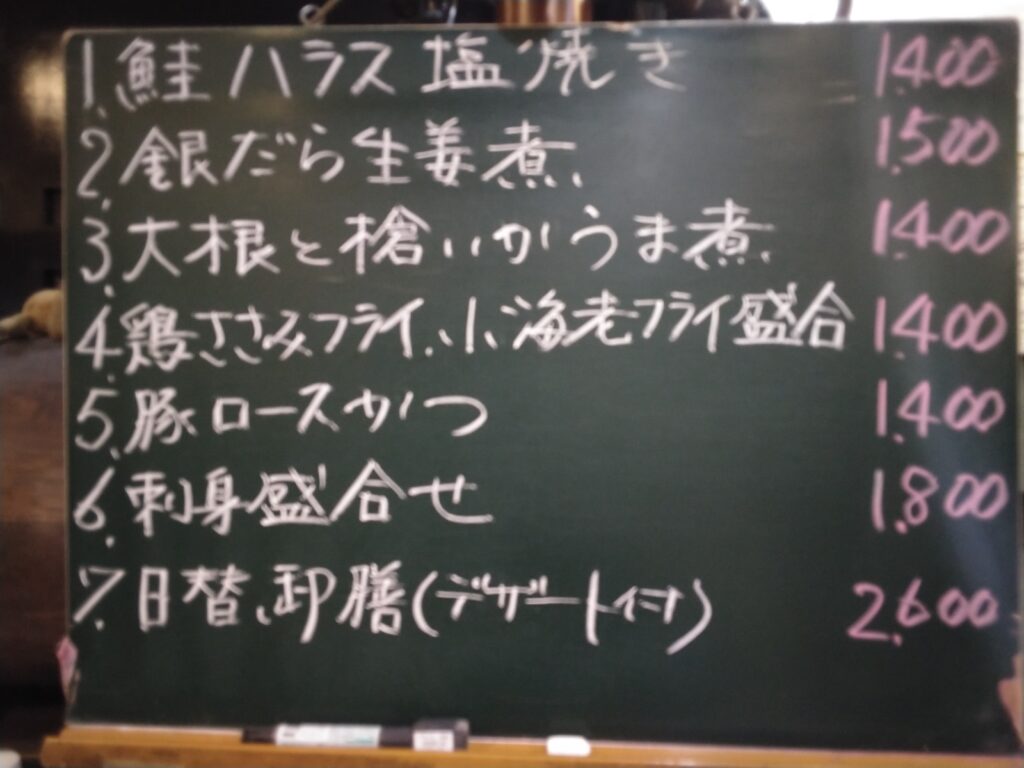 1. 鮭ハラス塩焼き 1.400
2. 銀だら生姜煮 1.500
3. 大根と槍いかうま煮 1.400
4. 鶏ささみフライ、小海老フライ盛合 1.400
5. 豚ロースかつ 1.400
6. 刺身盛合せ 1.800
7. 日替、卸膳(デザート付) 2.600